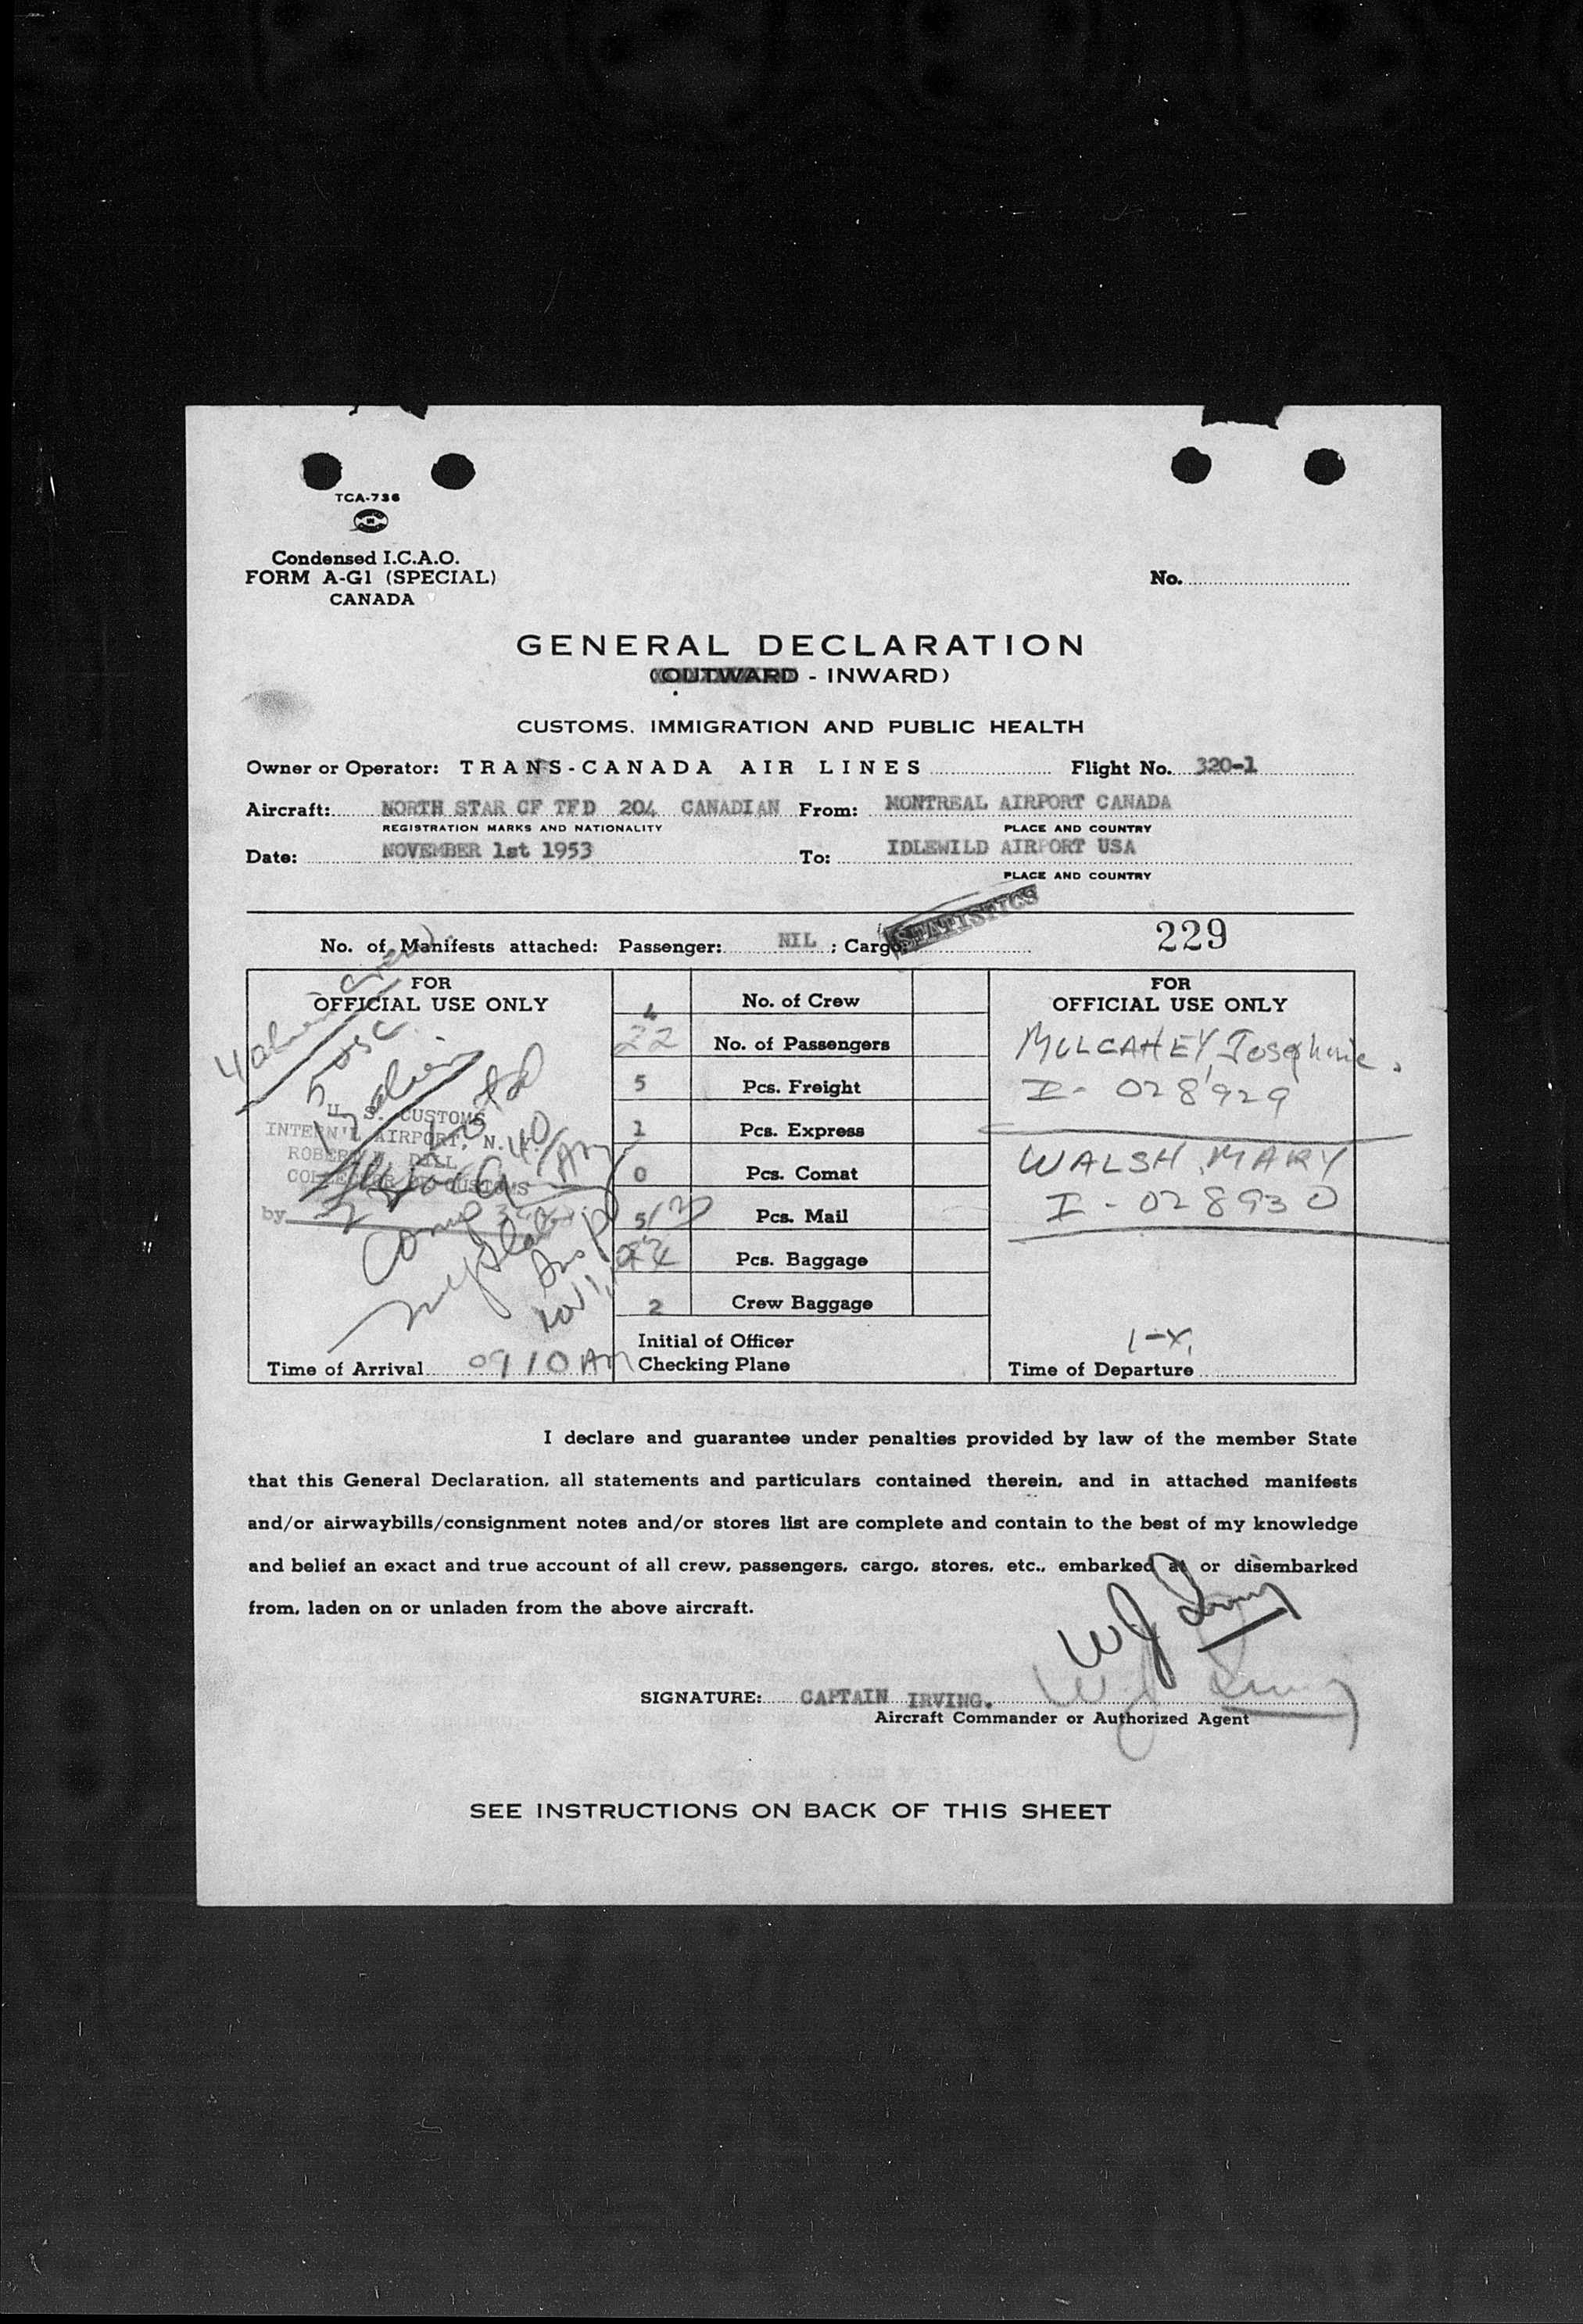 TCA-736
Condensed I.C.A.O.
FORM A-G1 (SPECIAL)
CANADA
No.
GENERAL DECLARATION
(OUTWARD - INWARD)
CUSTOMS, IMMIGRATION AND PUBLIC HEALTH
Owner or Operator: TRANS-CANADA AIR LINES Flight No. 320-1
Aircraft: NORTH STAR CF TFD 204 CANADIAN From: MONTREAL AIRPORT CANADA
REGISTRATION MARKS AND NATIONALITY PLACE AND COUNTRY
Date: NOVEMBER 1st 1953 To: IDLEWILD AIRPORT USA
PLACE AND COUNTRY
STATISTICS
No. of Manifests attached: Passenger: NIL ; Cargo: 229
FOR
OFFICIAL USE ONLY
4 alien crew
5 USC
17 alien
U. S. CUSTOMS
INTERN'L AIRPORT, N.Y.
ROBERT W. DILL
COLLECTOR OF CUSTOMS
by
Insp
Nov 1,
Time of Arrival 0910 AM
4 No. of Crew
22 No. of Passengers
5 Pcs. Freight
1 Pcs. Express
0 Pcs. Comat
5/ Pcs. Mail
Pcs. Baggage
2 Crew Baggage
Initial of Officer
Checking Plane
FOR
OFFICIAL USE ONLY
MULCAHEY, Josephine.
I- 028929
WALSH, MARY
I - 028930
1-X,
Time of Departure
I declare and guarantee under penalties provided by law of the member State
that this General Declaration, all statements and particulars contained therein, and in attached manifests
and/or airwaybills/consignment notes and/or stores list are complete and contain to the best of my knowledge
and belief an exact and true account of all crew, passengers, cargo, stores, etc., embarked at or disembarked
from, laden on or unladen from the above aircraft.
WJ Irving
SIGNATURE: CAPTAIN IRVING. WJ Irving
Aircraft Commander or Authorized Agent
SEE INSTRUCTIONS ON BACK OF THIS SHEET